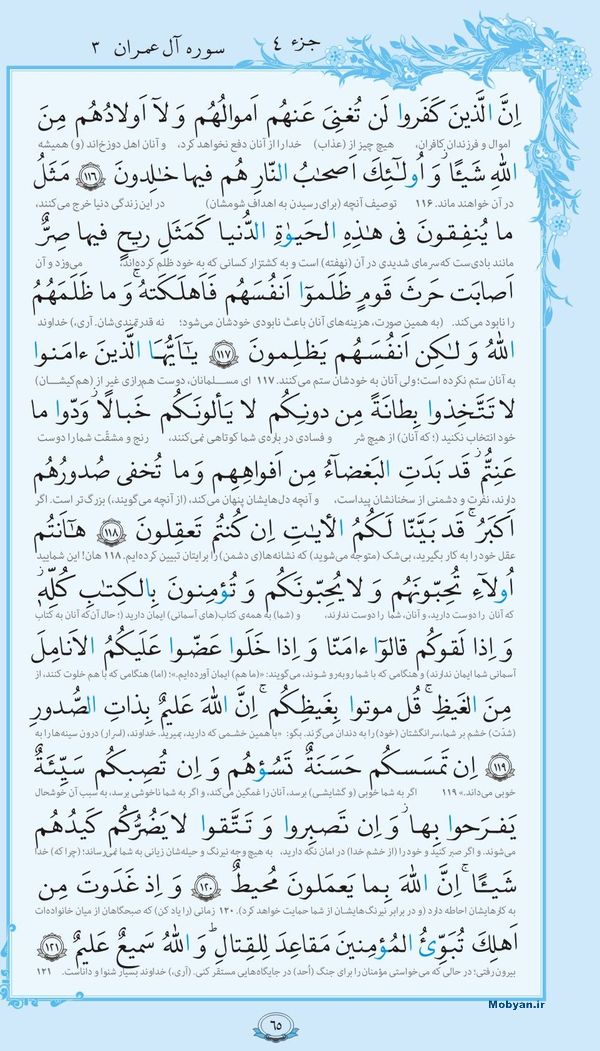 جزء ٤
سوره آل عمران ٣
اِنَّ الَّذينَ كَفَروا لَن تُغنِىَ عَنهُم اَموالُهُم وَ لاٰ اَولادُهُم مِنَ
اموال و فرزندان کافران، هیچ چیز از (عذاب) خدا را از آنان دفع نخواهد کرد، و آنان اهل دوزخ‌اند (و) همیشه
اللهِ شَيـًٔا وَ اُولـٰئِكَ اَصحابُ النّارِ هُم فيها خالِدونَ ١١٦ مَثَلُ
در آن خواهند ماند. ۱۱۶ توصیف آنچه (برای رسیدن به اهداف شومشان) در این زندگی دنیا خرج می‌کنند،
ما يُنفِقونَ فى هـٰذِهِ الحَيوٰةِ الدُّنيا كَمَثَلِ ريحٍ فيها صِرٌّ
مانند بادی‌ست که سرمای شدیدی در آن (نهفته) است و به کشتزار کسانی که به خود ظلم کرده‌اند، می‌وزد و آن
اَصابَت حَرثَ قَومٍ ظَلَمو‌ٓا اَنفُسَهُم فَاَهلَكَتهُ وَ ما ظَلَمَهُمُ
را نابود می‌کند. (به همین صورت، هزینه‌های آنان باعث نابودی خودشان می‌شود؛ نه قدرتمندی‌شان. آری،) خداوند
اللهُ وَ لـٰكِن اَنفُسَهُم يَظلِمونَ ١١٧ يـٰٓاَيُّهَا الَّذينَ ءامَنوا
به آنان ستم نکرده است؛ ولی آنان به خودشان ستم می‌کنند. ۱۱۷ ای مسلمانان، دوست هم‌رازی غیر از (هم‌کیشان)
لا تَتَّخِذوا بِطانَةً مِن دونِكُم لا يَألونَكُم خَبالًا وَدّوا ما
خود انتخاب نکنید (؛ که آنان) از هیچ شر و فسادی در باره‌ی شما کوتاهی نمی‌کنند، رنج و مشقّت شما را دوست
عَنِتُّم قَد بَدَتِ البَغضاءُ مِن اَفواهِهِم وَ ما تُخفى صُدورُهُم
دارند، نفرت و دشمنی از سخنانشان پیداست، و آنچه دل‌هایشان پنهان می‌کند، (از آنچه می‌گویند،) بزرگ‌تر است. اگر
اَكبَرُ قَد بَيَّنّا لَكُمُ الأياتِ اِن كُنتُم تَعقِلونَ ١١٨ هـٰٓاَنتُم
عقل خود را به کار بگیرید، بی‌شک (متوجه می‌شوید) که نشانه‌ها(ی دشمن) را برایتان تبیین کرده‌ایم. ۱۱۸ هان! این شمایید
اُولاءِ تُحِبّونَهُم وَ لا يُحِبّونَكُم وَ تُؤمِنونَ بِالكِتـٰبِ كُلِّهِ
که آنان را دوست دارید، و آنان، شما را دوست ندارند، و (شما) به همه‌ی کتاب(های آسمانی) ایمان دارید (؛ حال آن‌که آنان به کتاب
وَ اِذا لَقوكُم قالوٓا ءامَنّا وَ اِذا خَلَوا عَضّوا عَلَيكُمُ الاَنامِلَ
آسمانی شما ایمان ندارند) و هنگامی که با شما روبه‌رو شوند، می‌گویند: «(ما هم) ایمان آورده‌ایم.»؛ (اما) هنگامی که با هم خلوت کنند، از
مِنَ الغَيظِ قُل موتوا بِغَيظِكُم اِنَّ اللهَ عَليمٌ بِذاتِ الصُّدورِ
(شدّت) خشم بر شما، سرانگشتان (خود) را به دندان می‌گزند. بگو: «با همین خشمی که دارید، بمیرید. خداوند، (اسرار) درون سینه‌ها را به
١١٩ اِن تَمسَسكُم حَسَنَةٌ تَسُؤهُم وَ اِن تُصِبكُم سَيِّئَةٌ
خوبی می‌داند.» ۱۱۹ اگر به شما خوبی (و گشایشی) برسد، آنان را غمگین می‌کند، و اگر به شما ناخوشی برسد، به سبب آن خوشحال
يَفرَحوا بِها وَ اِن تَصبِروا وَ تَتَّقوا لا يَضُرُّكُم كَيدُهُم
می‌شوند. و اگر صبر کنید و خود را (از خشم خدا) در امان نگه دارید، به هیچ وجه نیرنگ و حیله‌شان زیانی به شما نمی‌رساند؛ (چرا که) خدا
شَيـًٔا اِنَّ اللهَ بِما يَعمَلونَ مُحيطٌ ١٢٠ وَ اِذ غَدَوتَ مِن
به کارهایشان احاطه دارد (و در برابر نیرنگ‌هایشان از شما حمایت خواهد کرد). ۱۲۰ زمانی (را یاد کن) که صبحگاهان از میان خانواده‌ات
اَهلِكَ تُبَوِّئُ المُؤمِنينَ مَقاعِدَ لِلقِتالِ وَ اللهُ سَميعٌ عَليمٌ ١٢١
بیرون رفتی؛ در حالی که می‌خواستی مؤمنان را برای جنگ (اُحد) در جایگاه‌هایی مستقر کنی. (آری،) خداوند بسیار شنوا و داناست. ۱۲۱
Mobyan.ir
٦٥